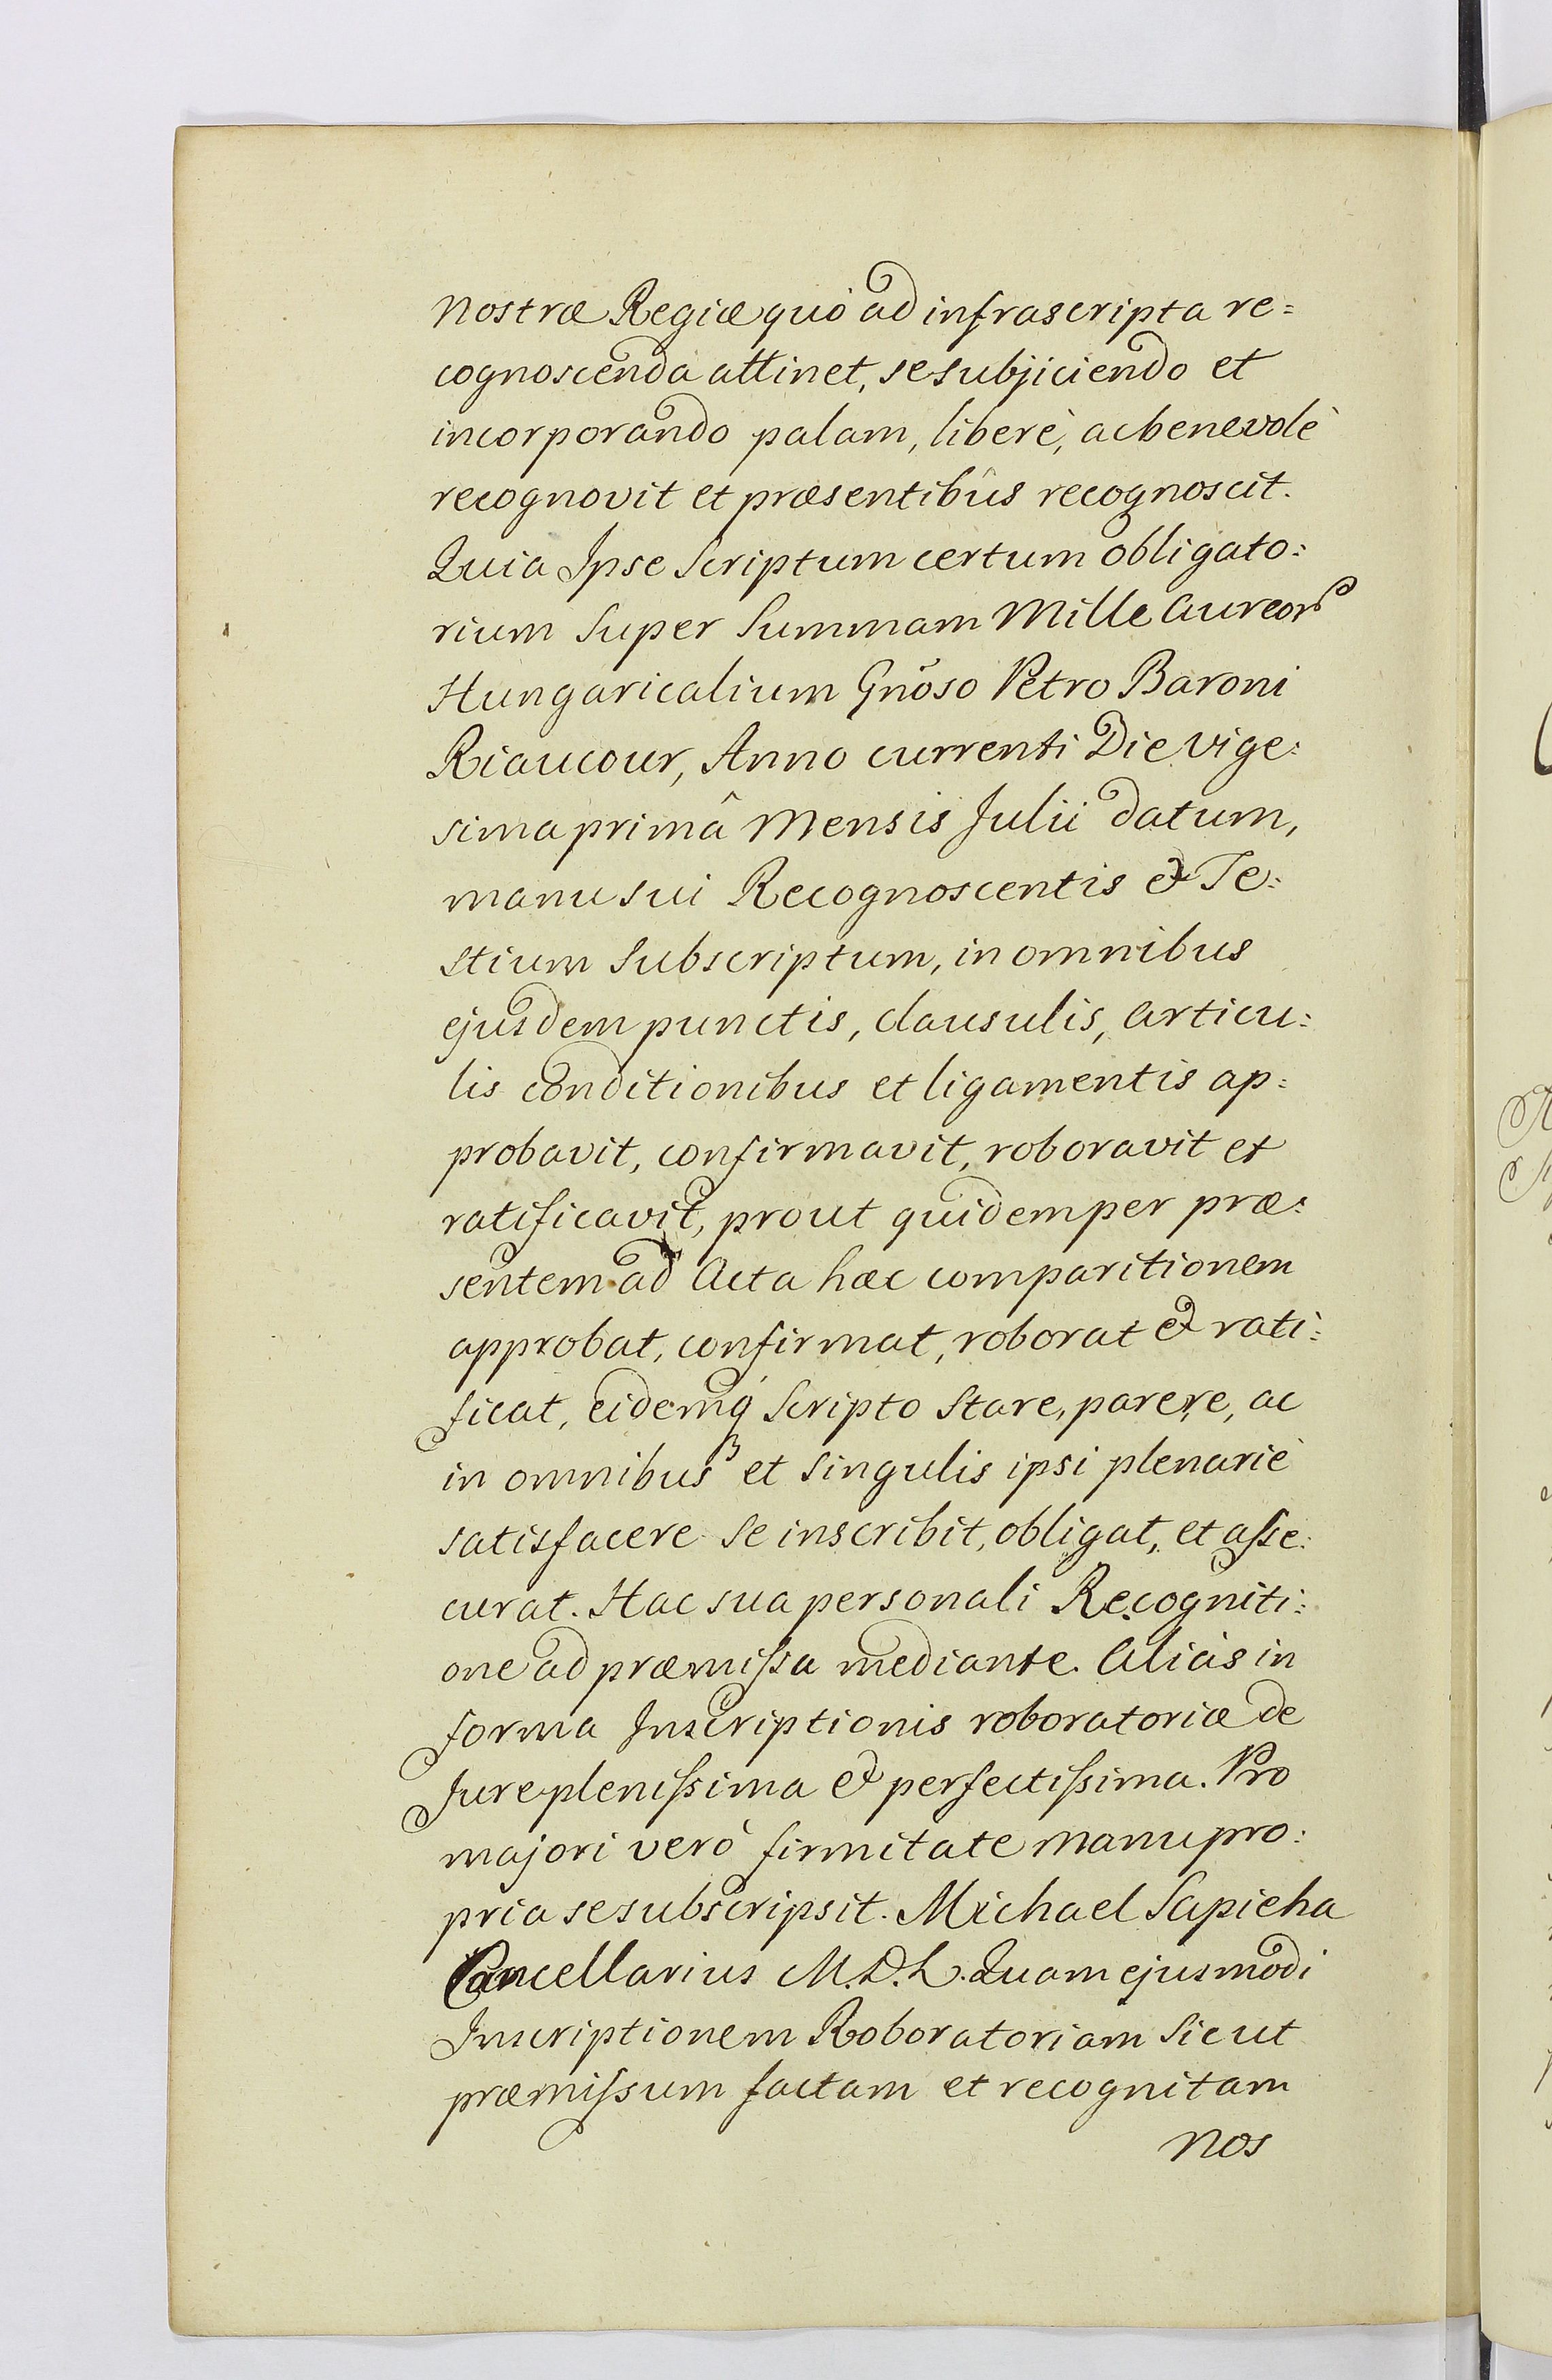 nostræ Regiæ quò ad infrascripta re=
cognoscenda attinet, se subjiciendo et
incorporando palam, liberè, ac benevolè
recognovit et præsentibûs recognoscit.
Quia Ipse Scriptum certum obligato:
rium Super Summam Mille Aureor
Hungaricalium Gnõso Petro Baroni
Riaucour, Anno currenti Die vige:
sima primâ Mensis Julii datum,
manu sui Recognoscentis & Te:
stium Subscriptum, in omnibus
ejusdem punctis, clausulis, Articu:
lis conditionibus et ligamentis ap:
probavit, confirmavit, roboravit et
ratificavit, prout quidem per præ:
sentem ad Acta hæc comparitionem
approbat, confirmat, roborat & rati:
ficat, eidemq́ Scripto Stare, parere, ac
in omnibus et Singulis ipsi plenariè
satisfacere Se inscribit, obligat, et aſse:
curat. Hac sua personali Recogniti:
one ad præmiſsa mediante. Aliàs in
forma Inscriptionis roboratoriæ de
Jure pleniſsima & perfectiſsima. Pro
majori verò firmitate manu pro:
pria se subscripsit. Michael Sapieha
Cancellarius M.D.L. Quam ejusmodi
Inscriptionem Roboratoriam Sic ut
præmiſsum factam et recognitam
nos